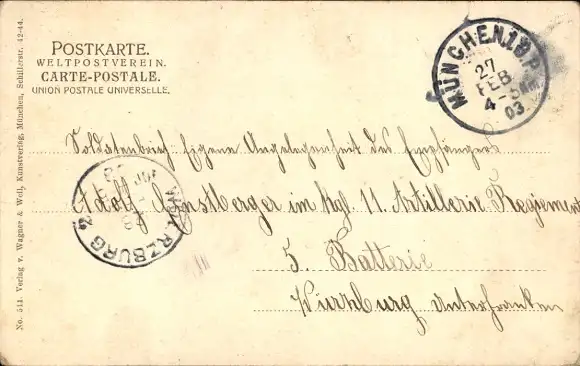 POSTKARTE.
WELTPOSTVEREIN.
CARTE-POSTALE.
UNION POSTALE UNIVERSELLE.
MÜNCHEN.1.B.P.
27
FEB
4-5 NM.
03
Soldatenbrief: Eigene Angelegenheit des Empfängers
Adolf im Kgl. 11. Artillerie-Regiment
5. Batterie
Würzburg Unterfranken
WÜRZBURG
No. 511. Verlag v. Wagner & Weil, Kunstverlag, München, Schillerstr. 42-44.